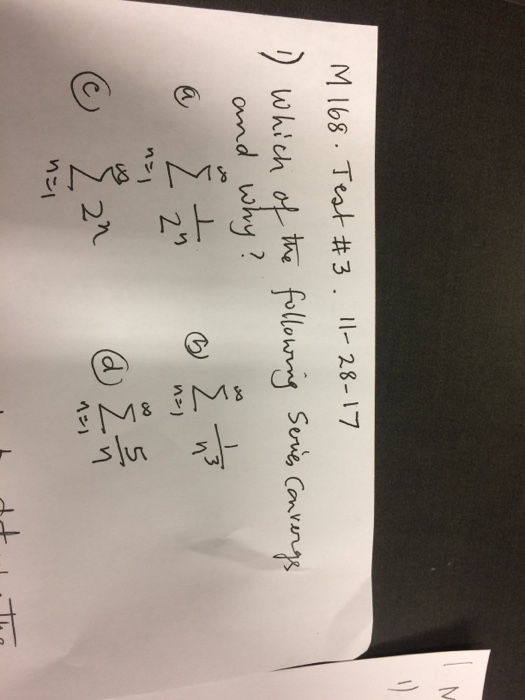 M 168. Test #3. 11-28-17
1) Which of the following Series Converges
and why?
ⓐ ∞ Σ n=1 1/2ⁿ ⓑ ∞ Σ n=1 1/n³
ⓒ ∞ Σ n=1 2ⁿ ⓓ ∞ Σ n=1 5/n
The
1)